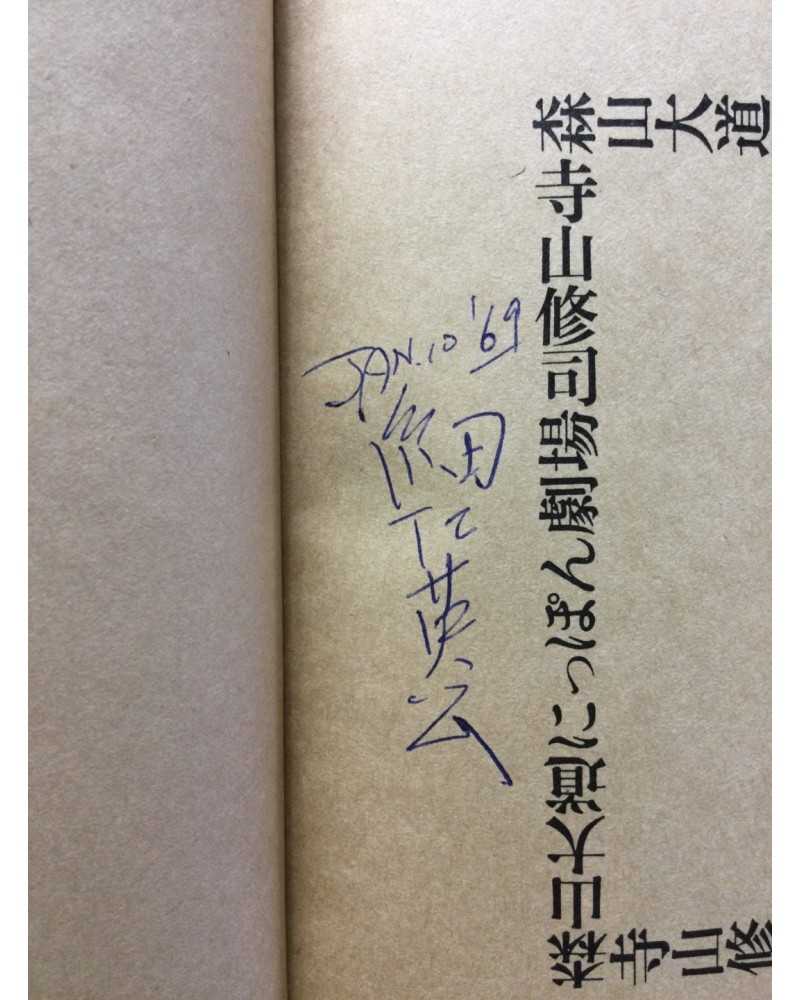 JAN.10 '69
細江英公
森山大道
寺山修司
森山大道にっぽん劇場
寺山修